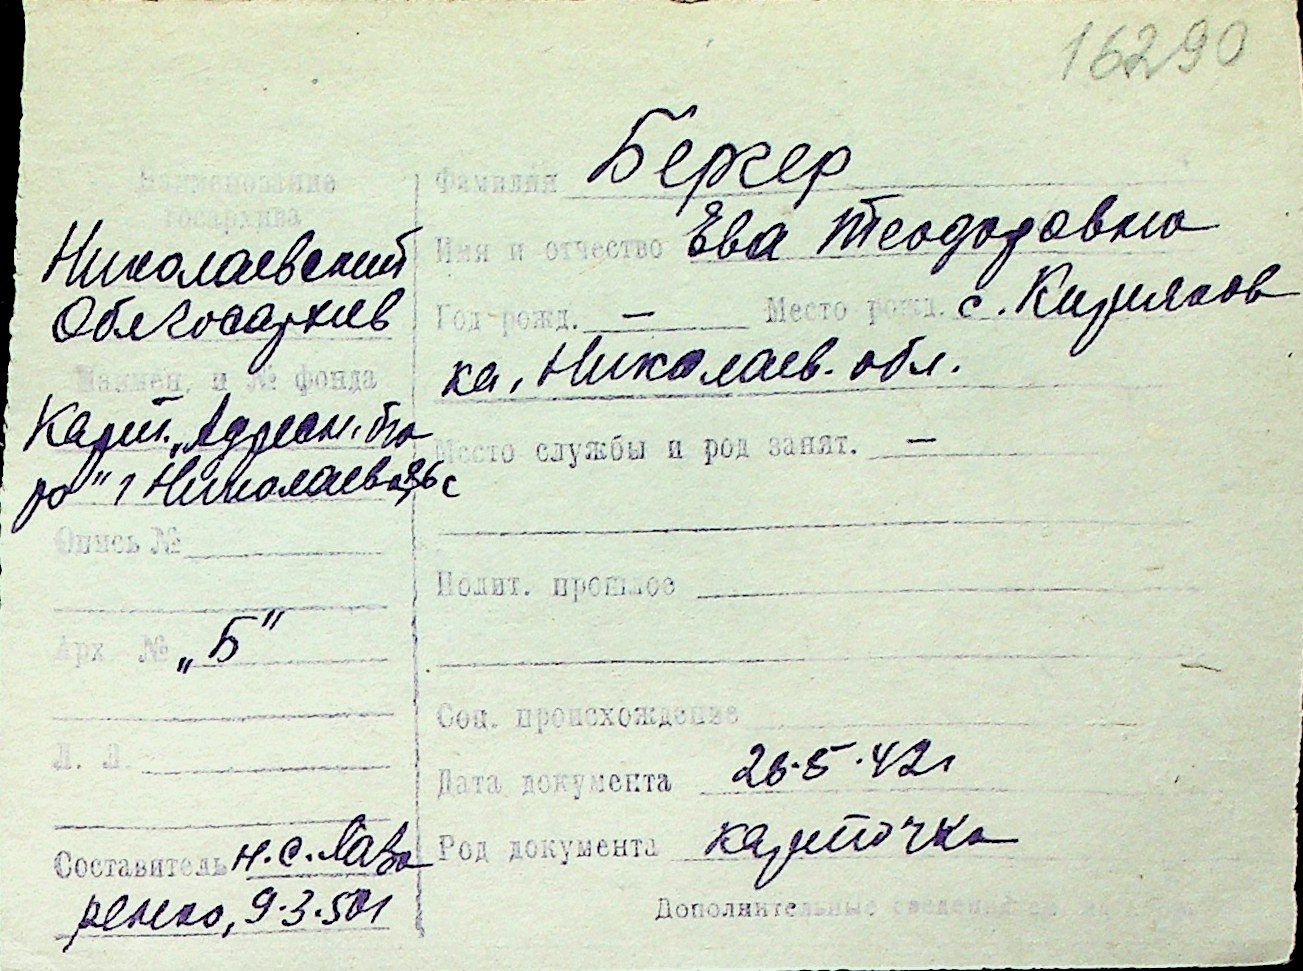 16290
Наименование
госархива
Николаевский
Облгосархив
Наимен. и № фонда
Карт. „Адресн. бю
ро" г Николаева
Опись №
Арх. № „Б"
Л. Л.
Составитель Н. С. Лавр
ренко, 9.3.50г
Фамилия Бергер
Имя и отчество Ева Теодоровна
Год рожд. — Место рожд. с. Киряков
ка, Николаев. обл.
Место службы и род занят. —
Полит. прошлое
Соц. происхождение
Дата документа 26.5.42г
Род документа карточка
Дополнительные сведения